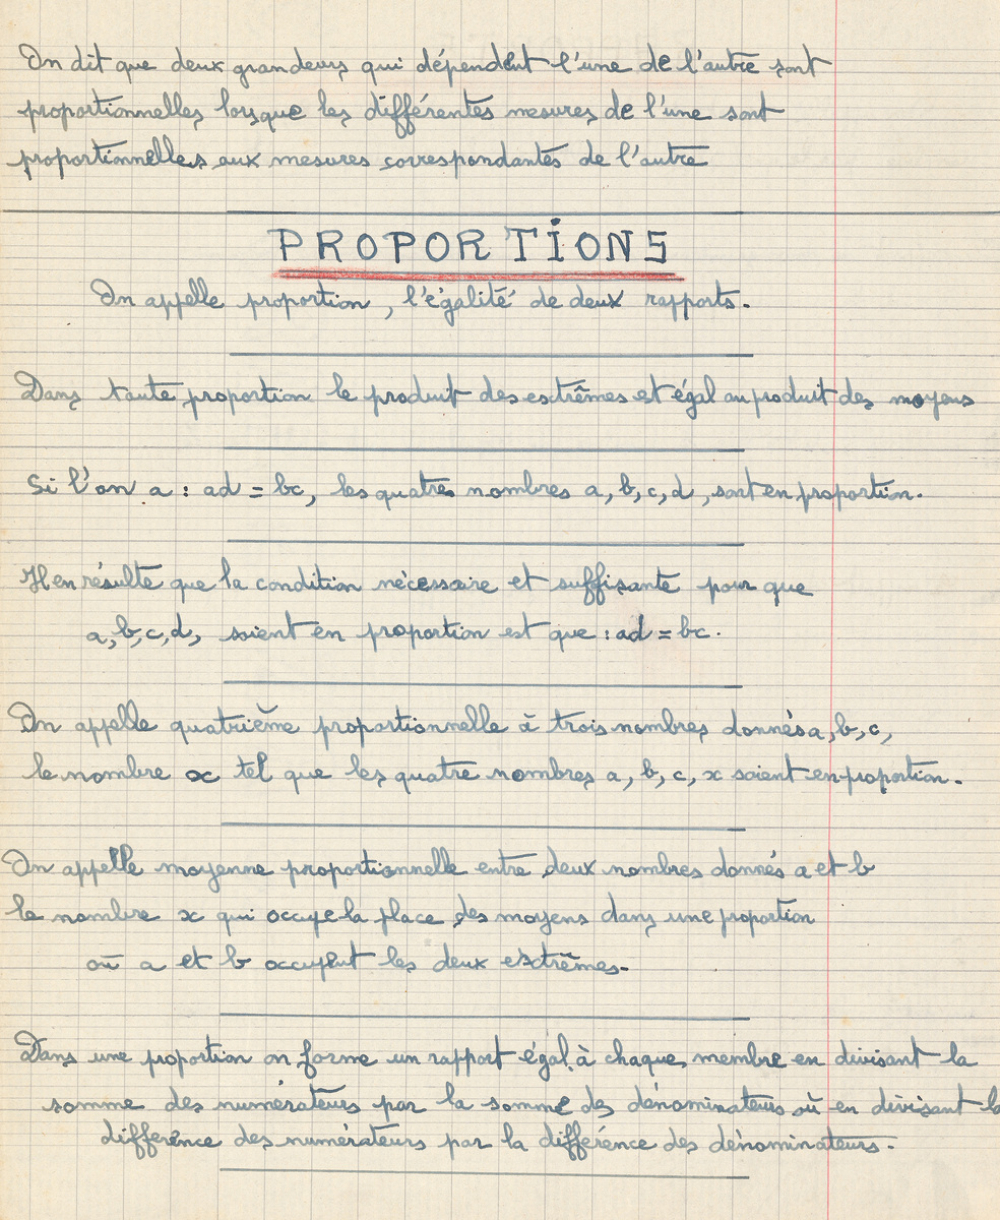 On dit que deux grandeurs qui dépendent l'une de l'autre sont
proportionnelles lorsque les différentes mesures de l'une sont
proportionnelles aux mesures correspondantes de l'autre
PROPORTIONS
On appelle proportion, l'égalité de deux rapports.
Dans toute proportion le produit des extrêmes est égal au produit des moyens
Si l'on a : ad = bc, les quatres nombres a, b, c, d, sont en proportion.
Il en résulte que la condition nécessaire et suffisante pour que
a, b, c, d, soient en proportion est que : ad = bc.
On appelle quatrième proportionnelle à trois nombres donnés a, b, c,
le nombre x tel que les quatre nombres a, b, c, x soient en proportion.
On appelle moyenne proportionnelle entre deux nombres donnés a et b
le nombre x qui occupe la place des moyens dans une proportion
où a et b occupent les deux extrêmes.
Dans une proportion on forme un rapport égal à chaque membre en divisant la
somme des numérateurs par la somme des dénominateurs où en divisant la
différence des numérateurs par la différence des dénominateurs.